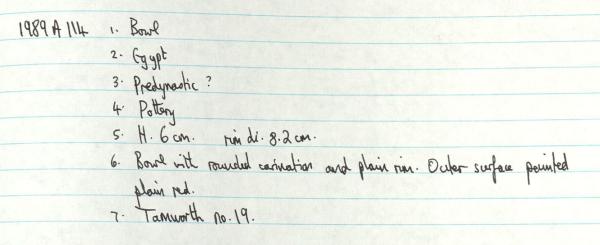 1989 A 114 1. Bowl
2. Egypt
3. Predynastic ?
4. Pottery
5. H. 6 cm. rim di. 8.2 cm.
6. Bowl with rounded carination and plain rim. Outer surface painted
plain red.
7. Tamworth no. 19.